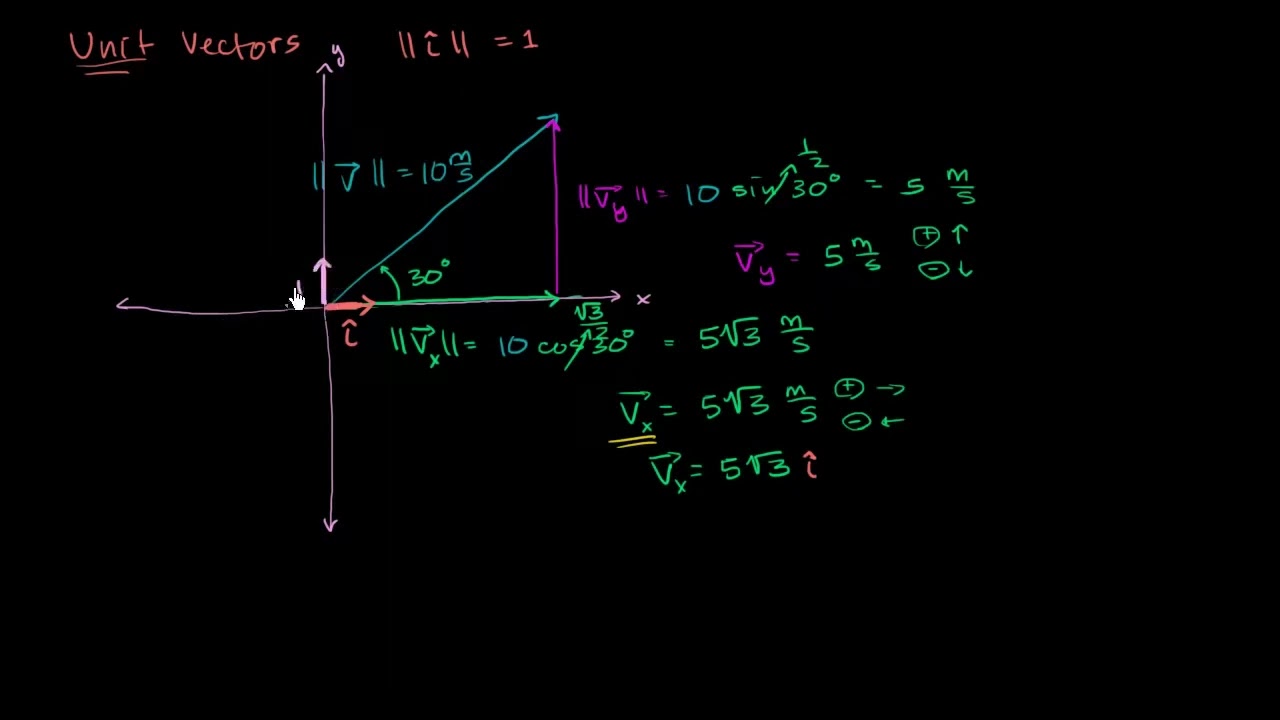 Unit Vectors ||î|| = 1
y
||v⃗|| = 10 m/s
||v⃗_y|| = 10 sin 30° = 5 m/s
1/2
v⃗_y = 5 m/s ⊕ ↑
⊖ ↓
30°
x
î
||v⃗_x|| = 10 cos 30° = 5√3 m/s
√3/2
v⃗_x = 5√3 m/s ⊕ →
⊖ ←
v⃗_x = 5√3 î